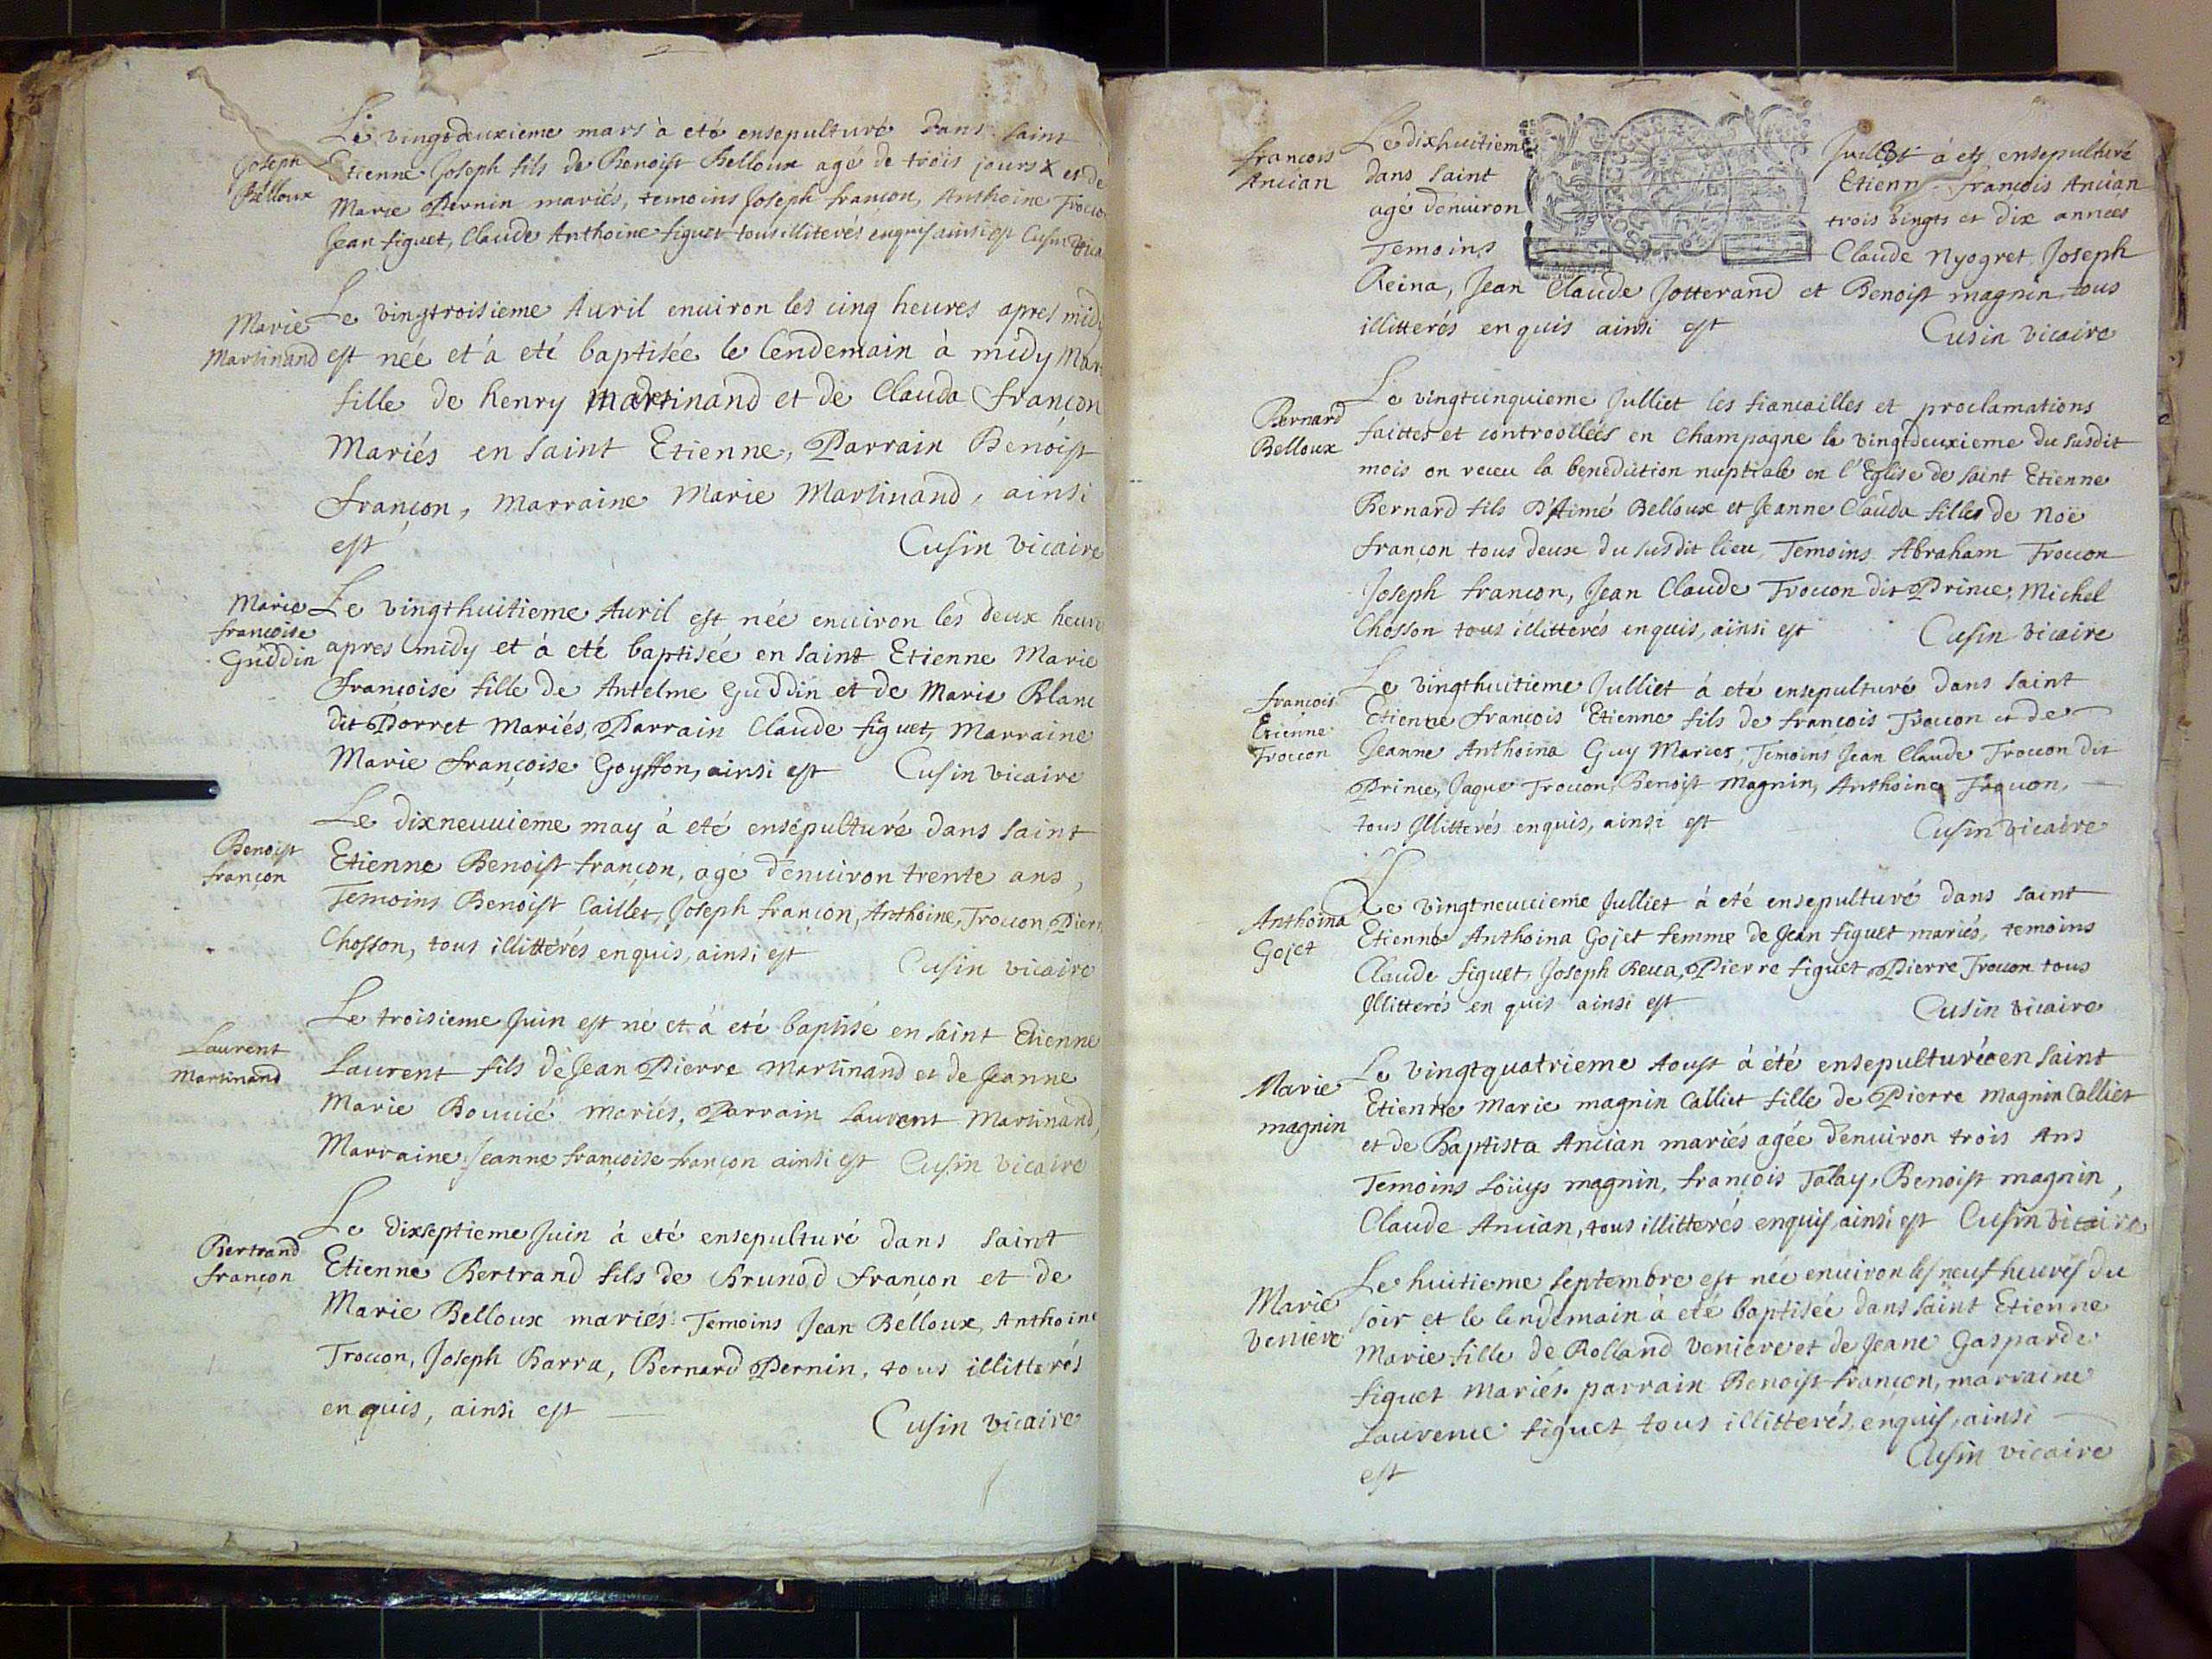 Le vingtdeuxieme mars à eté ensepulturé dans saint
Joseph Belloux
Etienne Joseph fils de Benoist Belloux agé de trois jours X et de
Marie Pernin mariés, temoins Joseph françon, Anthoine
Jean figuet, Claude Anthoine figuet tous illiterés enquis ainsi est Cusin
Marie Martinand
Le vingtroisieme Auril enuiron les cinq heures apres midy
est née et à eté baptisée le lendemain à midy
fille de henry Martinand et de Clauda françon
Mariés en saint Etienne, Parrain Benoist
françon, Marraine Marie Martinand, ainsi
est Cusin vicaire
Marie françoise Guddin
Le vingthuitieme Auril est née enuiron les deux
apres midy et à eté baptisée en saint Etienne Marie
françoise fille de Antelme Guddin et de Marie Blanc
dit Porret Mariés, Parrain Claude figuet, Marraine
Marie françoise Goyffon, ainsi est Cusin vicaire
Benoist françon
Le dixneuuieme may à eté ensépulturé dans saint
Etienne Benoist françon, agé d'enuiron trente ans,
Temoins Benoist Caillet, Joseph francon, Anthoine, Trocon,
Chosson, tous illittérés enquis, ainsi est Cusin vicaire
Laurent Martinand
Le troisieme Juin est né et à eté baptisé en saint Etienne
Laurent fils de Jean Pierre Martinand et de Jeanne
Marie Bouuié Mariés, Parrain Laurent Martinand,
Marraine Jeanne françoise françon ainsi est Cusin vicaire
Bertrand françon
Le dixseptieme Juin à eté ensepulturé dans saint
Etienne Bertrand fils de Brunod françon et de
Marie Belloux mariés. Temoins Jean Belloux, Anthoine
Trocon, Joseph Barra, Bernard Pernin, tous illitterés
enquis, ainsi est Cusin vicaire
francois Ancian
Le dixhuitieme Julliet à eté ensepulturé
dans saint Etienne francois Ancian
agé denuiron trois vingts et dix années
Temoins Claude Nyogret Joseph
Reina, Jean Claude Jotterand et Benoist magnin tous
illitterés enquis ainsi est Cusin vicaire
Bernard Belloux
Le vingtcinquieme Julliet les fiancailles et proclamations
faittes et controollées en Champagne le vingtdeuxieme du susdit
mois on receu la benediction nuptiale en l'Eglise de saint Etienne
Bernard fils D'Aimé Belloux et Jeanne Clauda fille de Noë
françon tous deux du susdit lieu, Temoins Abraham Trocon
Joseph francon, Jean Claude Trocon dit Prince, Michel
Chosson tous illitterés enquis, ainsi est Cusin vicaire
francois Etienne Trocon
Le vingthuitieme Julliet à eté ensepulturé dans saint
Etienne francois Etienne fils de francois Trocon et de
Jeanne Anthoina Guy Mariés, Temoins Jean Claude Trocon dit
Prince, Jaque Trocon, Benoist Magnin, Anthoine Trocon,
tous Illitterés enquis, ainsi est Cusin vicaire
Anthoina Gojet
Le vingtneuuieme Julliet à eté ensepulturé dans saint
Etienne Anthoina Gojet femme de Jean figuet mariés, temoins
Claude figuet, Joseph Reua, Pierre figuet Pierre Trocon tous
Illitterés en quis ainsi est Cusin vicaire
Marie magnin
Le vingtquatrieme Aoust à été ensepulturée en saint
Etienne Marie magnin Calliet fille de Pierre Magnin Calliet
et de Baptista Ancian mariés agée d'enuiron trois Ans
Temoins Loüys magnin, françois Talay, Benoist magnin,
Claude Ancian, tous illitterés enquis, ainsi est Cusin vicaire
Marie Veniere
Le huitieme septembre est née enuiron les neuf heures du
soir et le lendemain à eté baptisée dans saint Etienne
Marie fille de Rolland Veniere et de Jeane Gasparde
figuet Mariés. parrain Benoist françon, marraine
Laurence figuet tous illitterés, enquis, ainsi
est Cusin vicaire